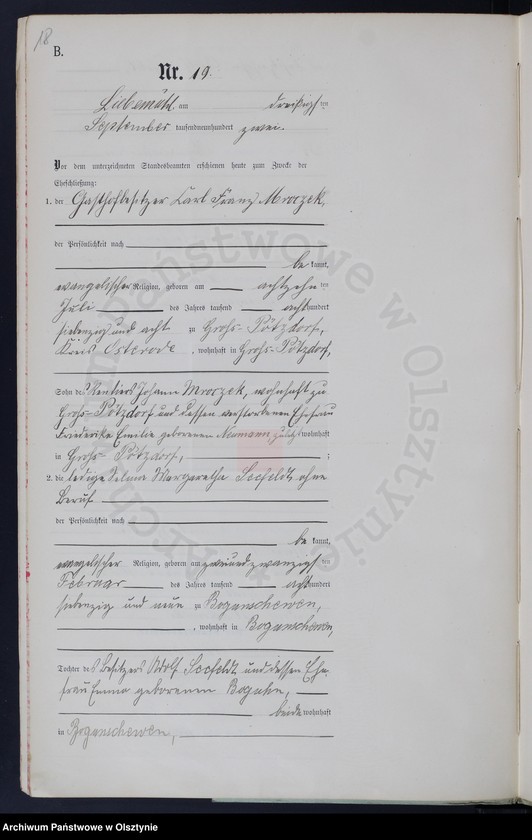 18
B.
Nr. 19.
Liebemühl am dreißigsten
September tausendneunhundert zwei.
Vor dem unterzeichneten Standesbeamten erschienen heute zum Zwecke der
Eheschließung:
1. der Gasthofbesitzer Karl Franz Mroczek,
der Persönlichkeit nach
be kannt,
evangelischer Religion, geboren am achtzehnten
Juli des Jahres tausend achthundert
siebenzig und acht zu Groß-Pötzdorf,
Kreis Osterode, wohnhaft in Groß-Pötzdorf,
Sohn des Rentiers Johann Mroczek, wohnhaft zu
Groß-Pötzdorf und dessen verstorbenen Ehefrau
Friederike Emilie geborenen Neumann, zuletzt wohnhaft
in Groß-Pötzdorf, ;
2. die ledige Selma Margaretha Seefeldt, ohne
Beruf
der Persönlichkeit nach
be kannt,
evangelischer Religion, geboren am zweiundzwanzigsten
Februar des Jahres tausend achthundert
siebenzig und neun zu Bogunschewen,
, wohnhaft in Bogunschewen,
Tochter des Besitzers Adolf Seefeldt und dessen Ehe-
frau Emma geborenen Boguhn,
beide wohnhaft
in Bogunschewen,
Państwowe w Olsztynie
Archiwum Państwowe w Olsztynie